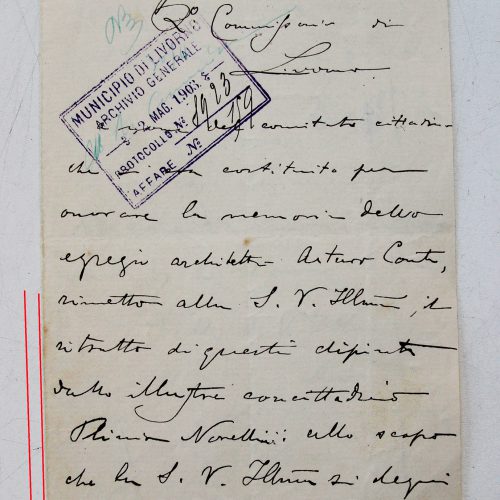 R° Commissario di
Livorno.
MUNICIPIO DI LIVORNO
ARCHIVIO GENERALE
2 MAG. 1903
PROTOCOLLO N° 1923
AFFARE N° 159
del comitato cittadi-
che si era costituito per
onorare la memoria dello
egregio architetto Arturo Conti,
rimetto alla S. V. Illma, il
ritratto di questi dipinto
dallo illustre concittadino
Plinio Novellini: allo scopo
che la S. V. Illma si degni